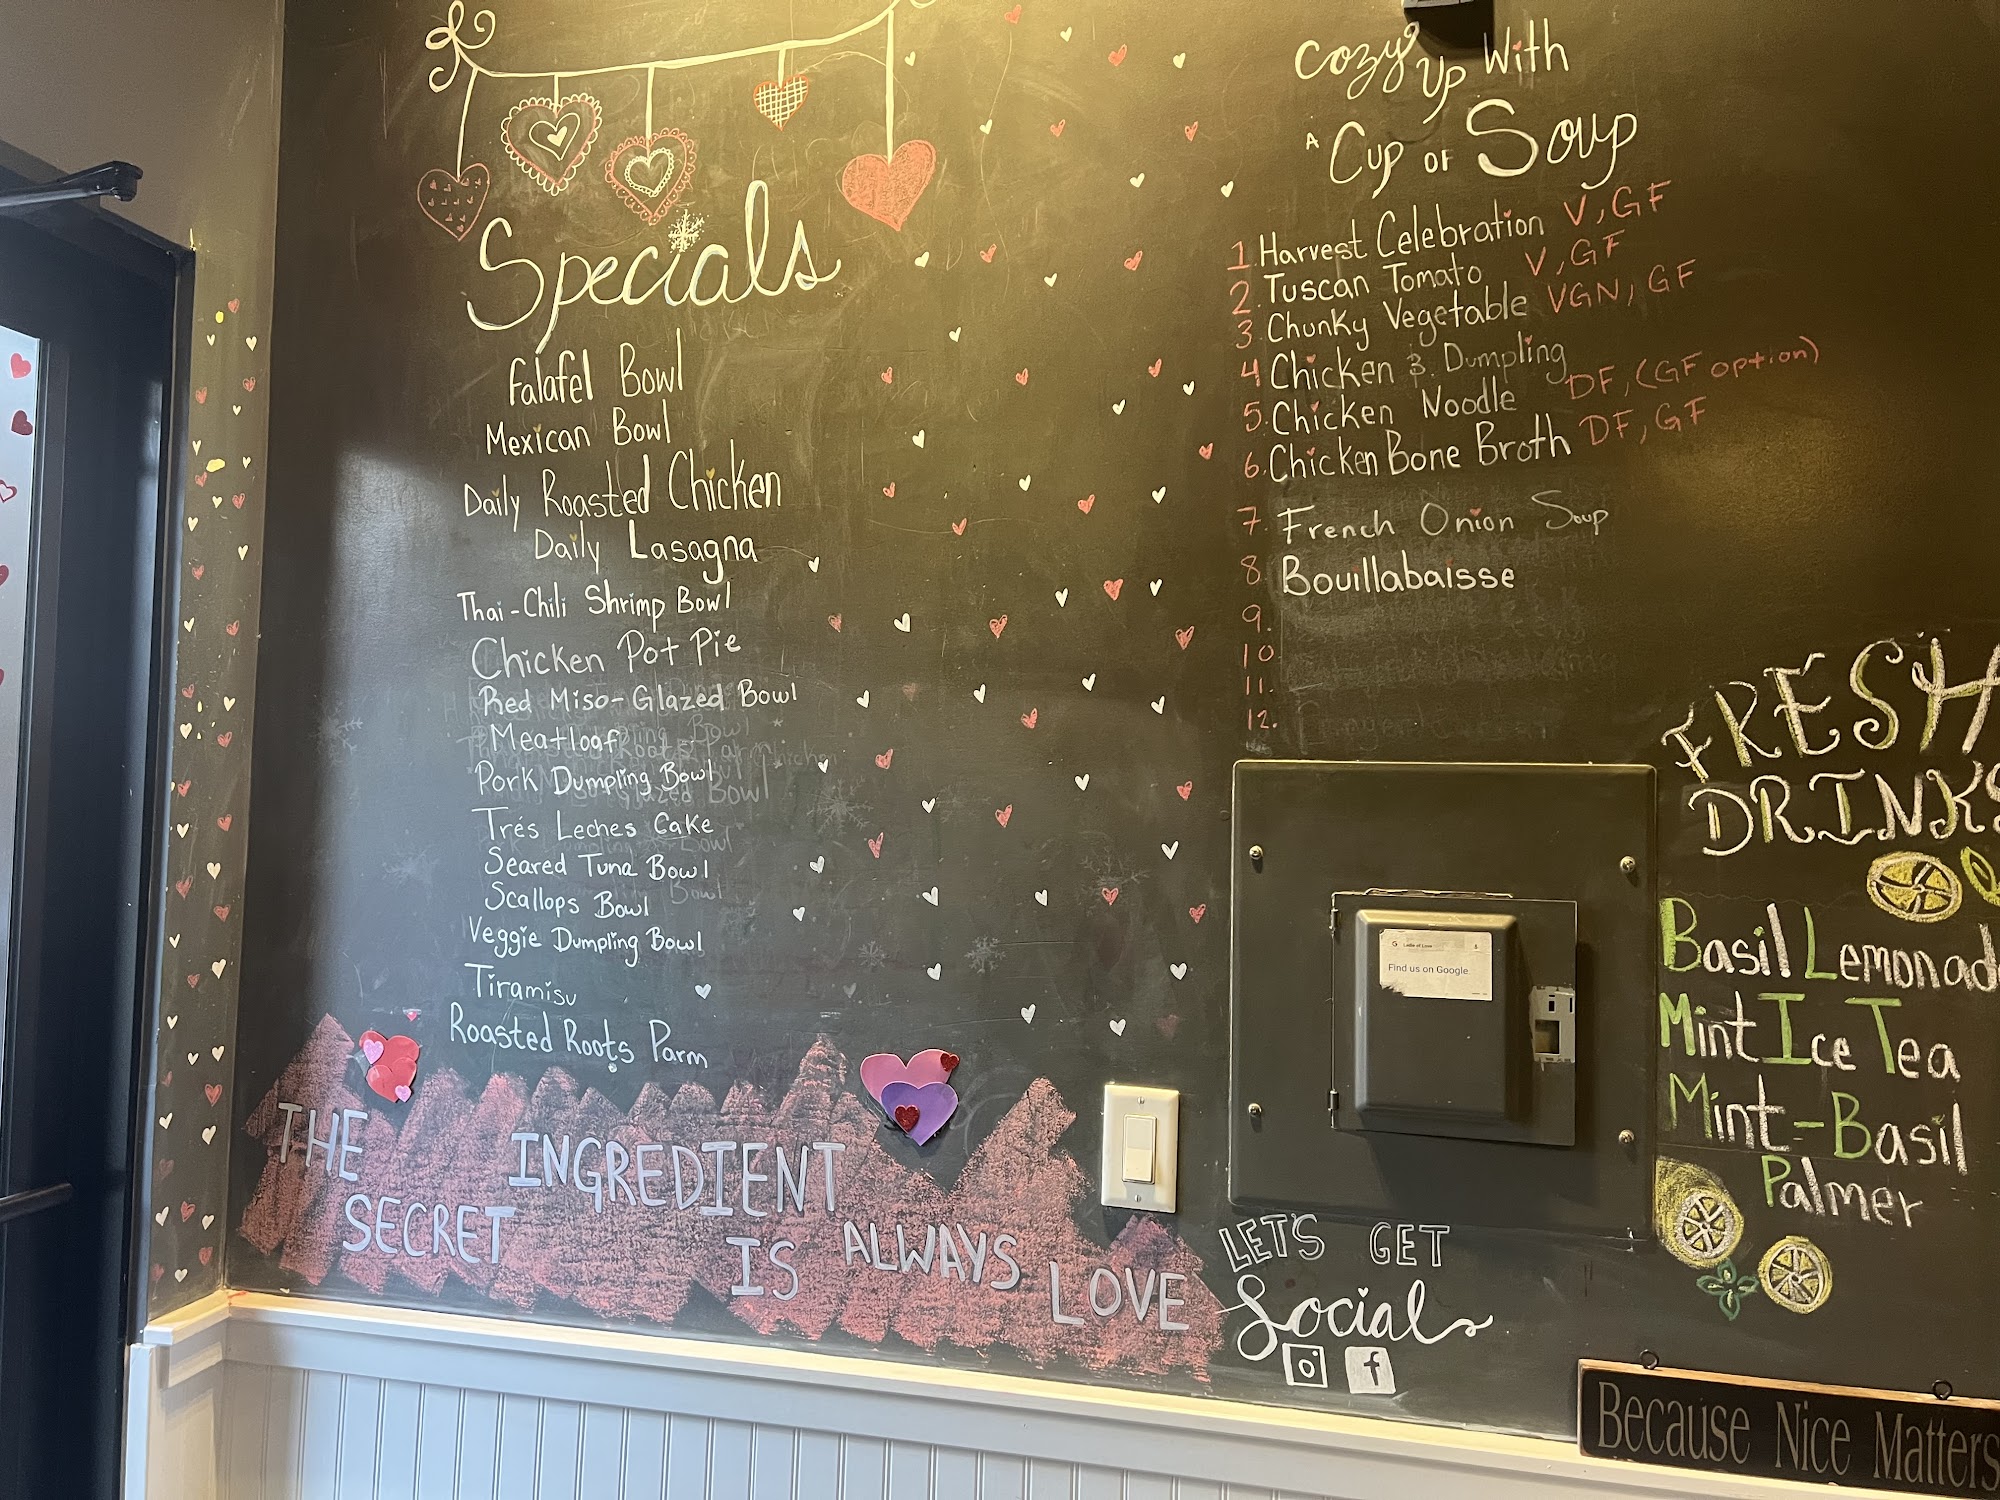 Specials
Falafel Bowl
Mexican Bowl
Daily Roasted Chicken
Daily Lasagna
Thai-Chili Shrimp Bowl
Chicken Pot Pie
Red Miso-Glazed Bowl
Meatloaf
Pork Dumpling Bowl
Trés Leches Cake
Seared Tuna Bowl
Scallops Bowl
Veggie Dumpling Bowl
Tiramisu
Roasted Roots Parm
THE
SECRET
INGREDIENT
IS ALWAYS
LOVE
Cozy Up With
A Cup OF Soup
1. Harvest Celebration V, GF
2. Tuscan Tomato V, GF
3. Chunky Vegetable VGN, GF
4 Chicken & Dumpling
5. Chicken Noodle DF, (GF option)
6. Chicken Bone Broth DF, GF
7. French Onion Soup
8. Bouillabaisse
9.
10
11.
12.
Find us on Google
LET'S GET
Social
f
FRESH
DRINKS
Basil Lemonad
Mint Ice Tea
Mint-Basil
Palmer
Because Nice Matters